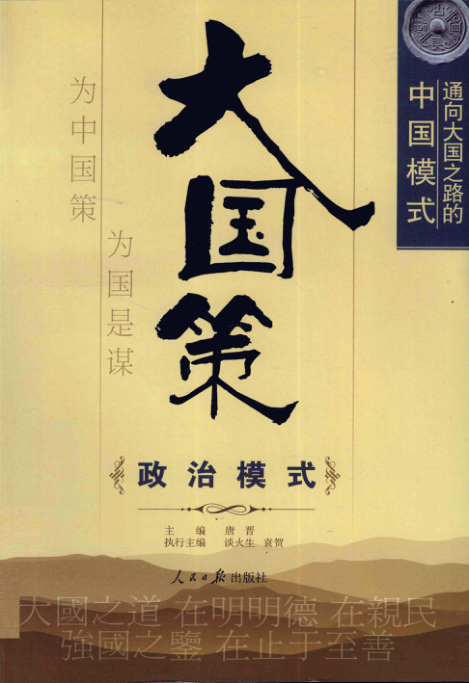 通向大国之路的
中国模式
大国策
为中国策
为国是谋
政治模式
主 编 唐 晋
执行主编 谈火生 袁贺
人民日报出版社
大國之道 在明明德 在親民
強國之鑒 在止于至善